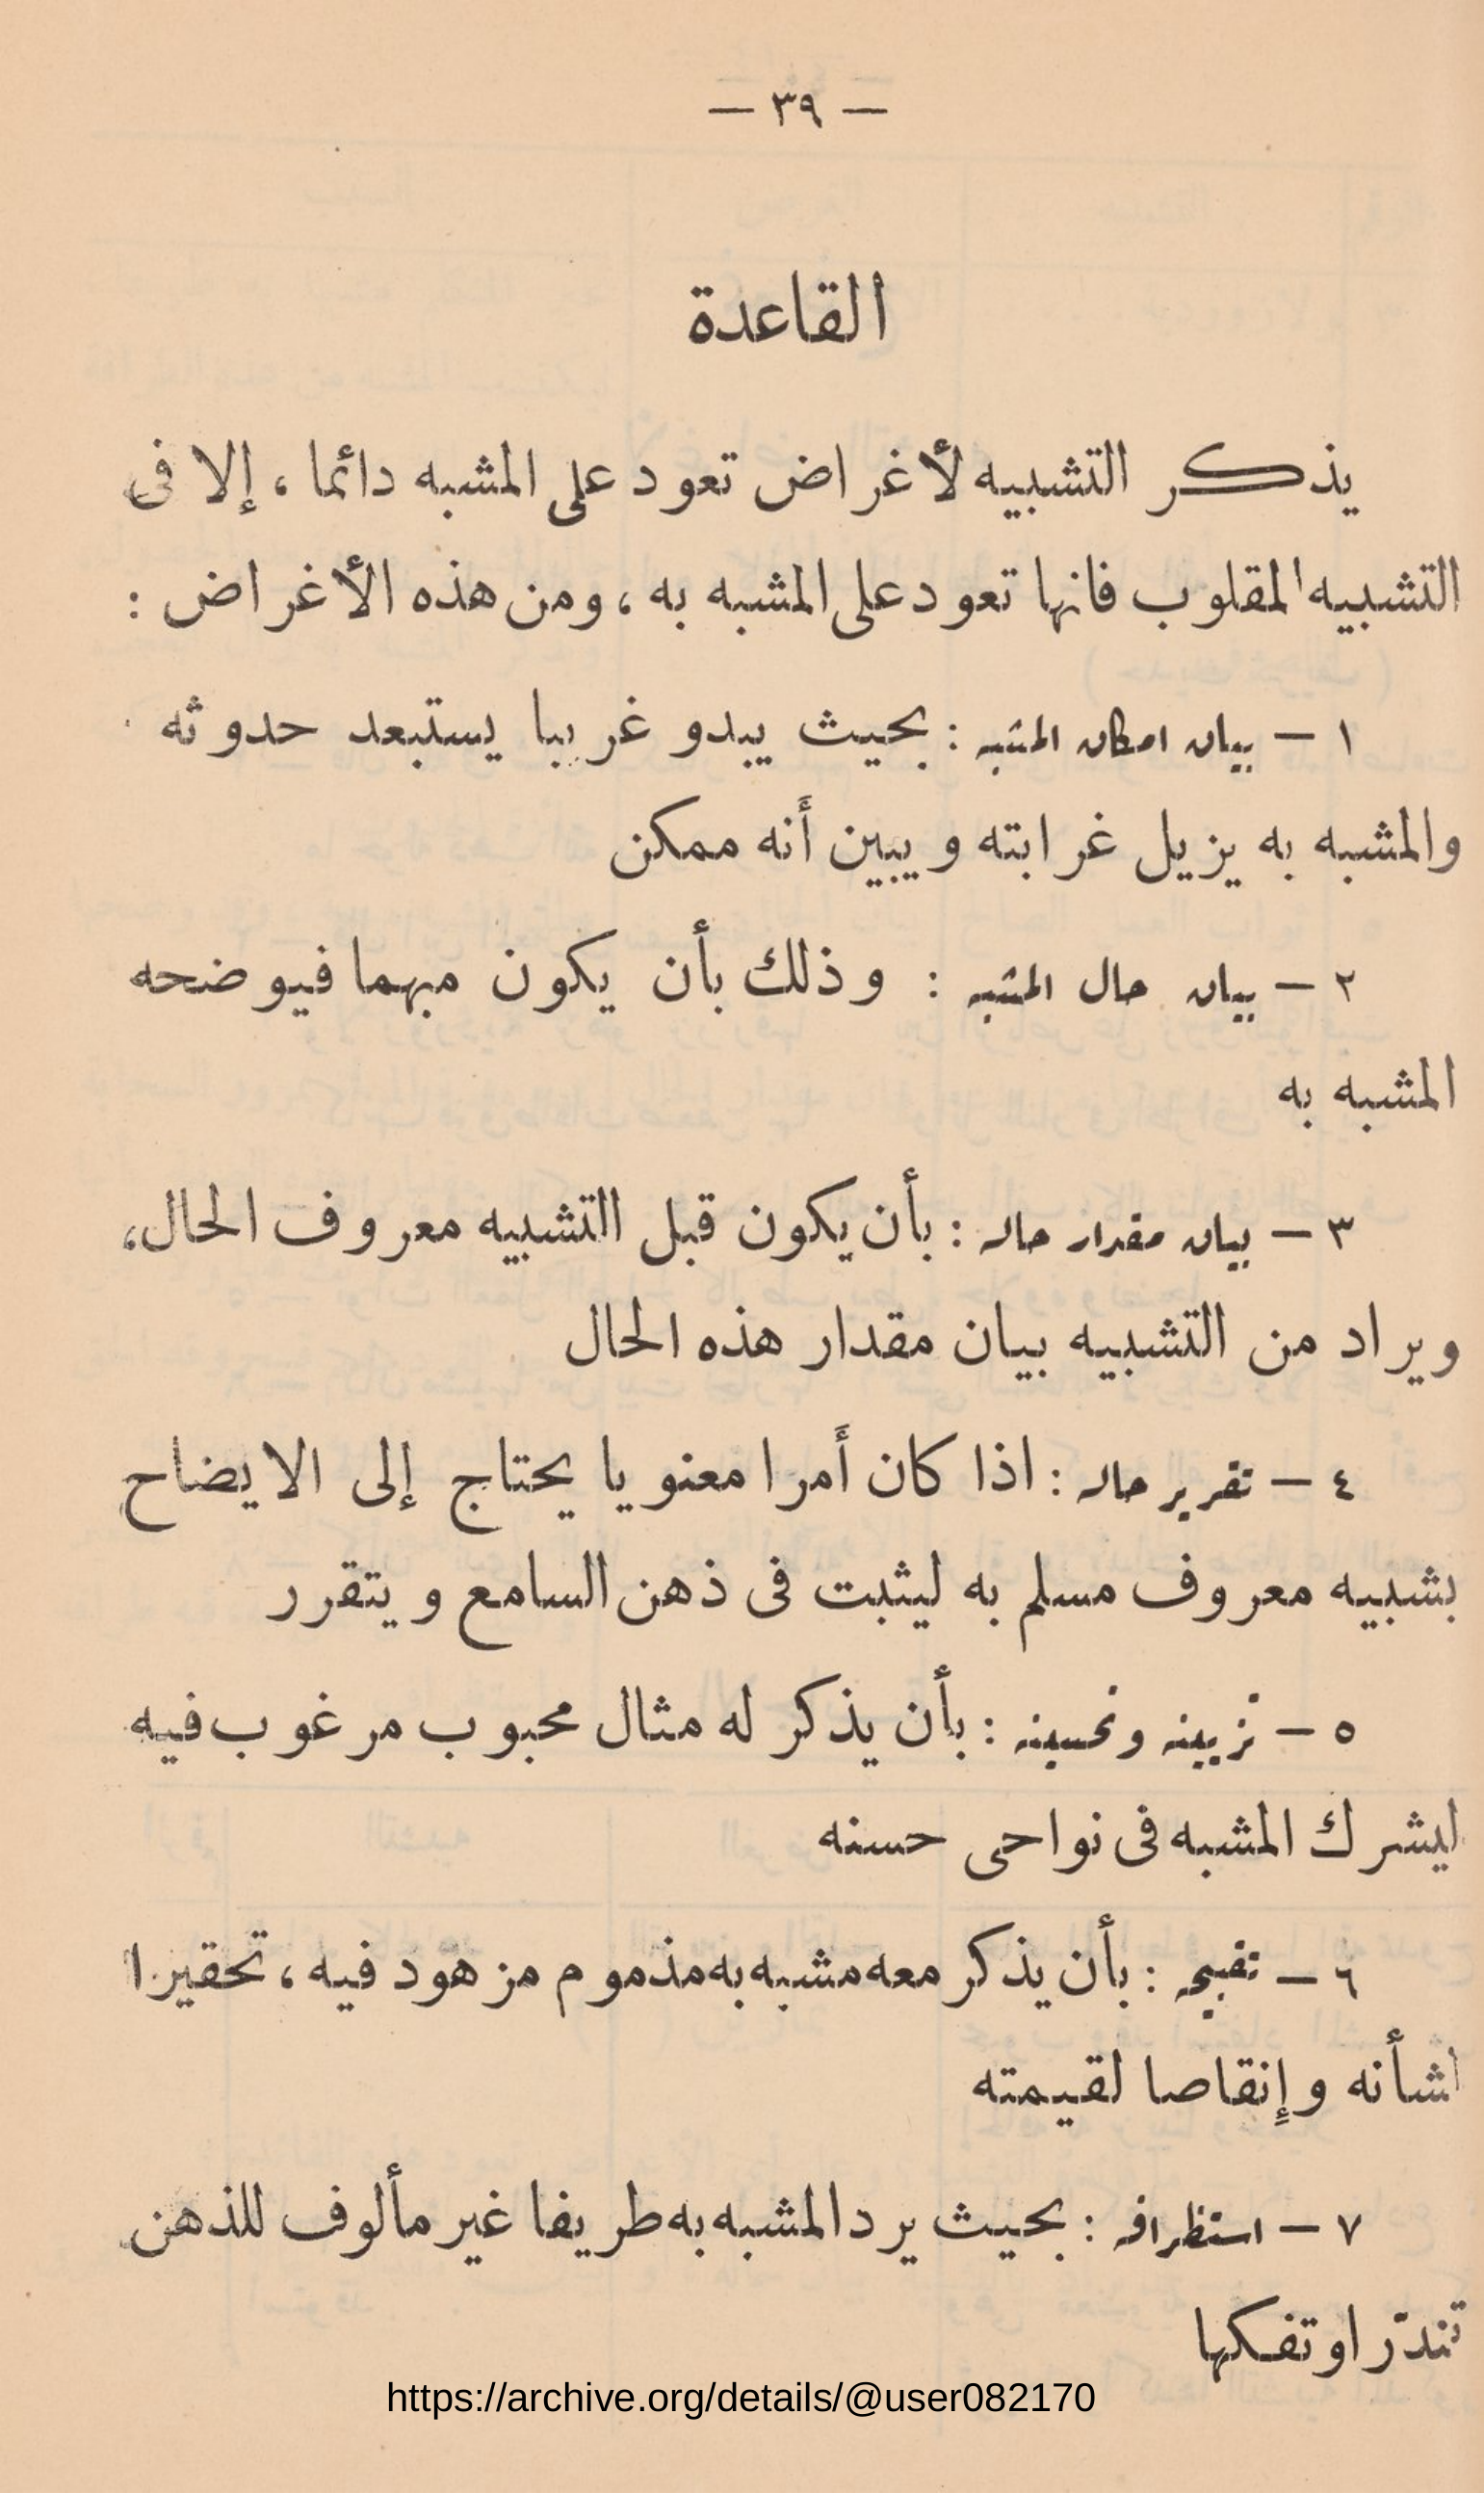 — ٣٩ —
القاعدة
يذكر التشبيه لأغراض تعود على المشبه دائما ، إلا فى
التشبيه المقلوب فانها تعود على المشبه به ، ومن هذه الأغراض :
١ — بيان امكان المشبه : بحيث يبدو غريبا يستبعد حدوثه
والمشبه به يزيل غرابته ويبين أنه ممكن
٢ — بيان حال المشبه : وذلك بأن يكون مبهما فيوضحه
المشبه به
٣ — بيان مقدار حاله : بأن يكون قبل التشبيه معروف الحال،
ويراد من التشبيه بيان مقدار هذه الحال
٤ — تقرير حاله : اذا كان أمرا معنويا يحتاج إلى الايضاح
بشبيه معروف مسلم به ليثبت فى ذهن السامع ويتقرر
٥ — تزيينه وتحسينه : بأن يذكر له مثال محبوب مرغوب فيه
ليشرك المشبه فى نواحى حسنه
٦ — تقبيحه : بأن يذكر معه مشبه به مذموم مزهود فيه ، تحقيرا
لشأنه وإنقاصا لقيمته
٧ — استظرافه : بحيث يرد المشبه به طريفا غير مألوف للذهن
تندّرا وتفكها
https://archive.org/details/@user082170